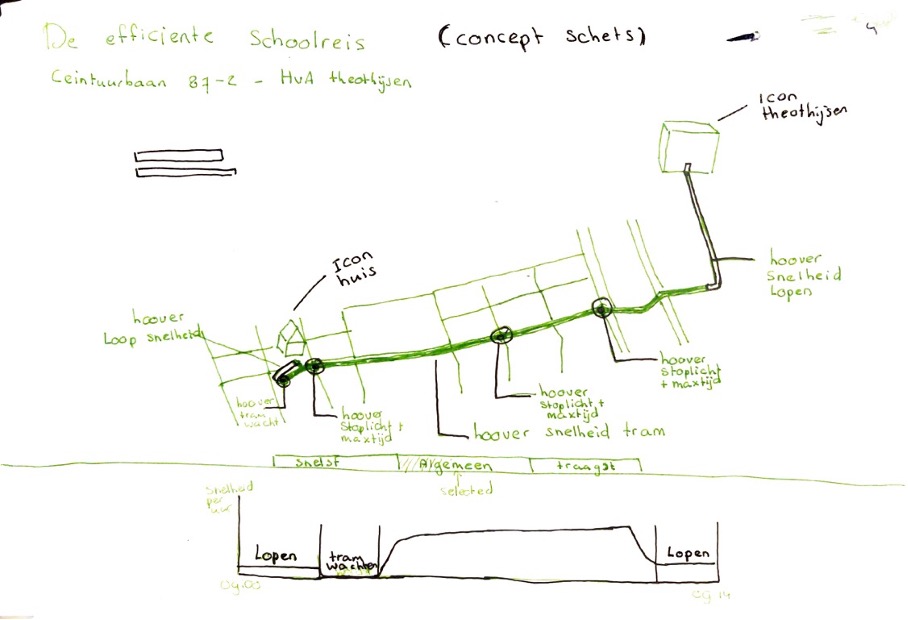 De efficiente Schoolreis (concept schets)
4
Ceintuurbaan 87-2 - HvA theothijsen
Icon
theothijsen
Icon
huis
hoover
Snelheid
Lopen
hoover
Loop snelheid
hoover
tram
wacht
hoover
Stoplicht +
maxtijd
hoover
Stoplicht, +
maxtijd
hoover
stoplicht
+ maxtijd
hoover snelheid tram
snelst
Algemeen
traagst
selected
Snelheid
per
uur
Lopen
tram
wachten
Lopen
09.00
09.14